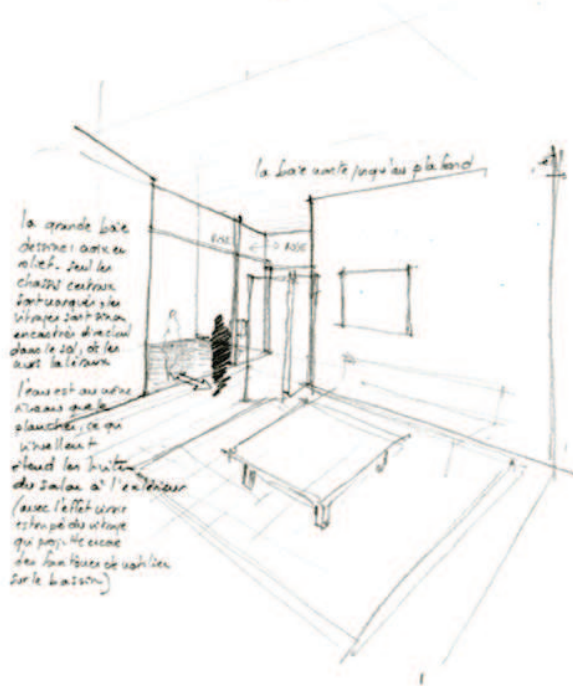 la baie monte jusqu'au plafond
ROSE ROSE
la grande baie
dessine: croix en
relief. Seul les
chassis centraux
sont marqués, les
vitrages sont sinon
encastrés directement
dans le sol, et les
murs latéraux
l'eau est au même
niveau que le
plancher, ce qui
visuellement
étend les limites
du salon à l'extérieur
(avec l'effet miroir
estompé du vitrage
qui projette encore
des fantômes de mobilier
sur le bassin)